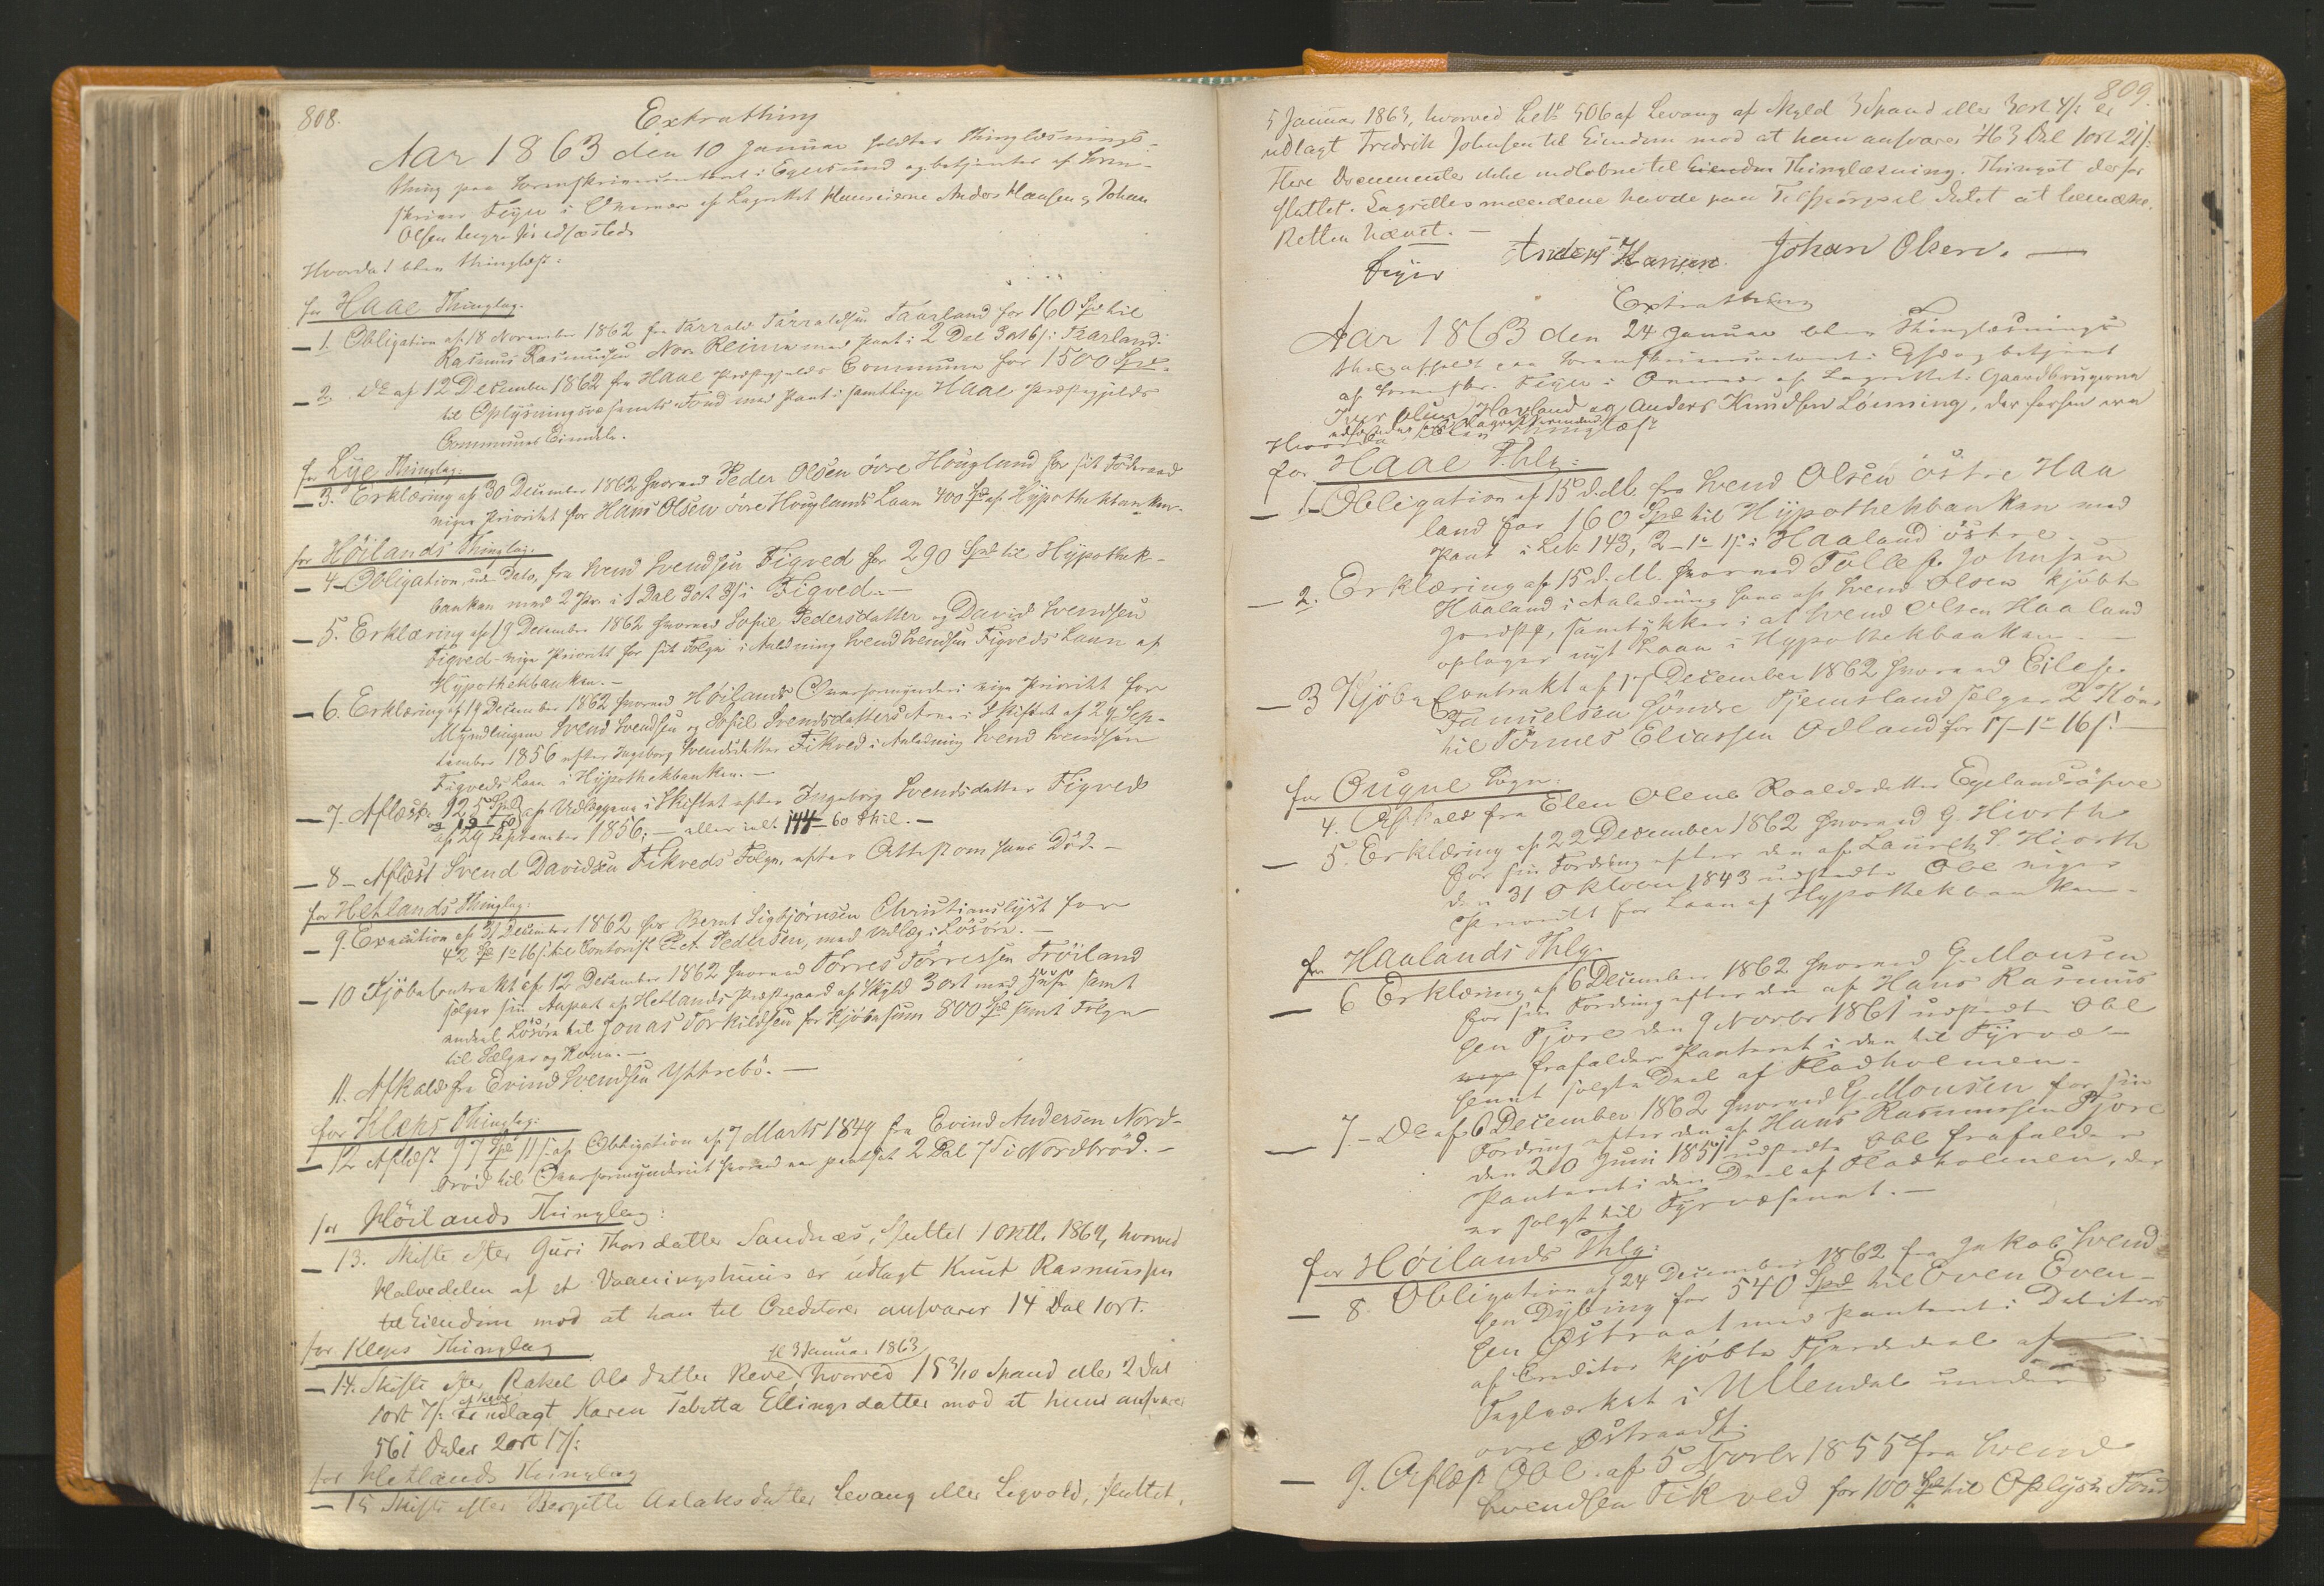 808.
Extrathing
Aar 1863 den 10 Januar holdtes Thinglæsnings-
thing paa Sorenskrivercontoret i Egersund og betjentes af Soren-
skriver Feyer i Overvær af Lagrettet Huuseierne Anders Hansen og Johan
Olsen begge før edfæstede
Hvorda blev thinglæst:
for Haae Thinglag.
1. Obligation af 18 November 1862 fra Tarrald Tarraldsen Taarland for 160 Spd til
Rasmus Rasmussen Nore Reime med Pant i 2 Dal 3 ort 6 s i Taarland.
2. Do af 12 December 1862 fra Haae Præstegjelds Commune for 1500 Spd.
til Oplysningsvæsenets Fond med Pant i samtlige Haae Præstegjelds
Communes Eiendele.
for Lye Thinglag:
3. Erklæring af 30 December 1862 hvorved Peder Olsen övre Houglund for sit Föderaad
viger Prioritet for Hans Olsen övre Houglunds Laan 400 Spd af Hypothekbanken.
for Höilands Thinglag.
4. Obligation, uden Dato, fra Svend Svendsen Figved for 290 Spd til Hypothek-
banken med 2 Pr. i 1 Dal 3 ort 8 s i Figved.
5. Erklæring af 19 December 1862 hvorved Sofie Pedersdatter og David Svendsen
Figved viger Prioritt for sit Folge i Anledning Svend Svendsen Figveds Laan af
Hypothekbanken.
6. Erklæring af 19 December 1862 hvorved Höilands Overformynderi viger Prioritt for
Myndlingene Svend Svendsen og Sofie Svendsdatters Arv i Skiftet af 29 Sep-
tember 1856 efter Ingeborg Svendsdatter Fikved i Anledning Svend Svendsen
Figveds Laan i Hypothekbanken.
7. Aflæst 125 Spd af Udlæggene i Skiftet efter Ingeborg Svendsdatter Figved
og 19 - 60
af 29 September 1856; eller ialt 144 - 60 Skil.
8 Aflæst Svend Davidsen Fikveds Folge, efter Attest om hans Död.
for Hetlands Thinglag:
9. Execution af 31 December 1862 hos Bernt Sigbjörnsen Christianslyst for
42 Spd 1 16 s til Contorist Pedersen, med Udlæg i Lösöre.
10 Kjöbecontrakt af 12 December 1862 hvorved Törres Törressen Tröiland
sælger sin Anpart af Hetlands Præstegaard af Skyld 3 ort med Huse samt
endeel Lösöre til Jonas Torkildsen for Kjöbesum 800 Spd samt Folge
til Sælger og Kone.
11. Afkald fra Evind Svendsen Yttrebö.
for Klæps Thinglag:
12 Aflæst 97 Spd 11 s af Obligation af 7 Marts 1849 fra Evind Andersen Nord-
bröd til Overformynderiet hvorved var pantsat 2 Dal 7 s i Nordbröd.
for Höilands Thinglag:
13. Skifte efter Guri Thorsdatter Sandnæs, sluttet 1 Oktbr 1862, hvorved
Halvedelen af et Vaaningshuus er udlagt Knut Rasmussen
til Eiendom mod at han til Creditorer ansvarer 14 Dal 1 ort.
for Kleps Thinglag
sl 3 Januar 1863
14. Skifte efter Rakel Olsdatter Reve, hvorved 15 3/10 Spand eller 2 Dal
af Reve
1 ort 7 s er udlagt Karen Tabitta Ellingsdatter mod at hun ansvarer
561 Daler 2 ort 17 s:
for Hetlands Thinglag
15 Skifte efter Bergitte Aslaksdatter Levang eller Sigvold, sluttet,
809.
5 Januar 1863, hvorved Lb No 506 af Levang af Skyld 3 Spand eller 3 ort 4 s er
udlagt Fredrik Johnsen til Eiendom mod at han ansvarer 463 Dal 1 ort 21 s:
Flere Documenter ikke indlobne til Eiendom Thinglæsning. Thinget derfor
sluttet. Lagrettesmændene havde paa Tilspörgsel Intet at bemærke.
Retten hævet.
Feyer Anders Hansen Johan Olsen.
Extrathing
Aar 1863 den 24 Januar blev Thinglæsnings
thing afholdt paa Sorenskrivercontoret i Egersd og betjent
af Sorenskr. Feyer i Overvær af Lagrettet: Gaardbrugerne
Iver Olsen Havland og Anders Knudsen Lönning, der forhen ere
edfæstede som Lagrettesmænd
Hvorda blev thinglæst
for Haae Thlg:
1. Obligation af 15 d. M. fra Svend Olsen östre Haa
land for 160 Spd til Hypothekbanken med
Pant i Lb: 143, 2 - 1 - 1 s i Haaland östre.
2. Erklæring af 15 d. M. hvorved Tollef Johnsen
Haaland i Anledning hans af Svend Olsen kjöbte
Jordst., samtykker i at Svend Olsen Haaland
optager nyt Laan i Hypothekbanken.
3 Kjöbe Contrakt af 17 December 1862 hvorved Eilef
Samuelsen söndre Tjemsland sælger 2 Köer
til Törres Eliassen Odland for 17 - 1 - 16 s.
for Ougne Sogn:
4. Afkald fra Elen Olene Roaldsdatter Egelandsöfre
5. Erklæring af 22 December 1862 hvorved G. Hiorth
for sin Fordring efter den af Lauritz S. Hiorth
den 31 Oktober 1843 udstedte Obl viger
Prioritt for Laan af Hypothekbanken
for Haalands Thlg.
6 Erklæring af 6 December 1862 hvorved G. Monsen
for sin Fordring efter den af Hans Rasmus
sen Tjore den 9 Novbr 1861 udstedte Obl
viger frafalder Panteret i den til Fyrvæ-
senet solgte Deel af Fladholmen.
7. Do af 6 December 1862 hvorved G. Monsen for sin
Fordring efter den af Hans Rasmussen Tjore
den 20 Juni 1857 udstedte Obl frafalder
Panteret i den Deel af Fladholmen, der
er solgt til Fyrvæsenet.
for Höilands Thlg:
8. Obligation af 24 December 1862 fra Jakob Svend
sen Dybing for 540 Spd til Even Even-
sen Östraat med Panteret i Debitors
af Creditor kjöbte Fjerdedeel af
Teglværket i Ullendal under
övre Östraadt.
9. Aflæst Obl. af 5 Novbr 1855 fra Svend
Svendsen Fikved for 100 Spd til Oplysn Fond